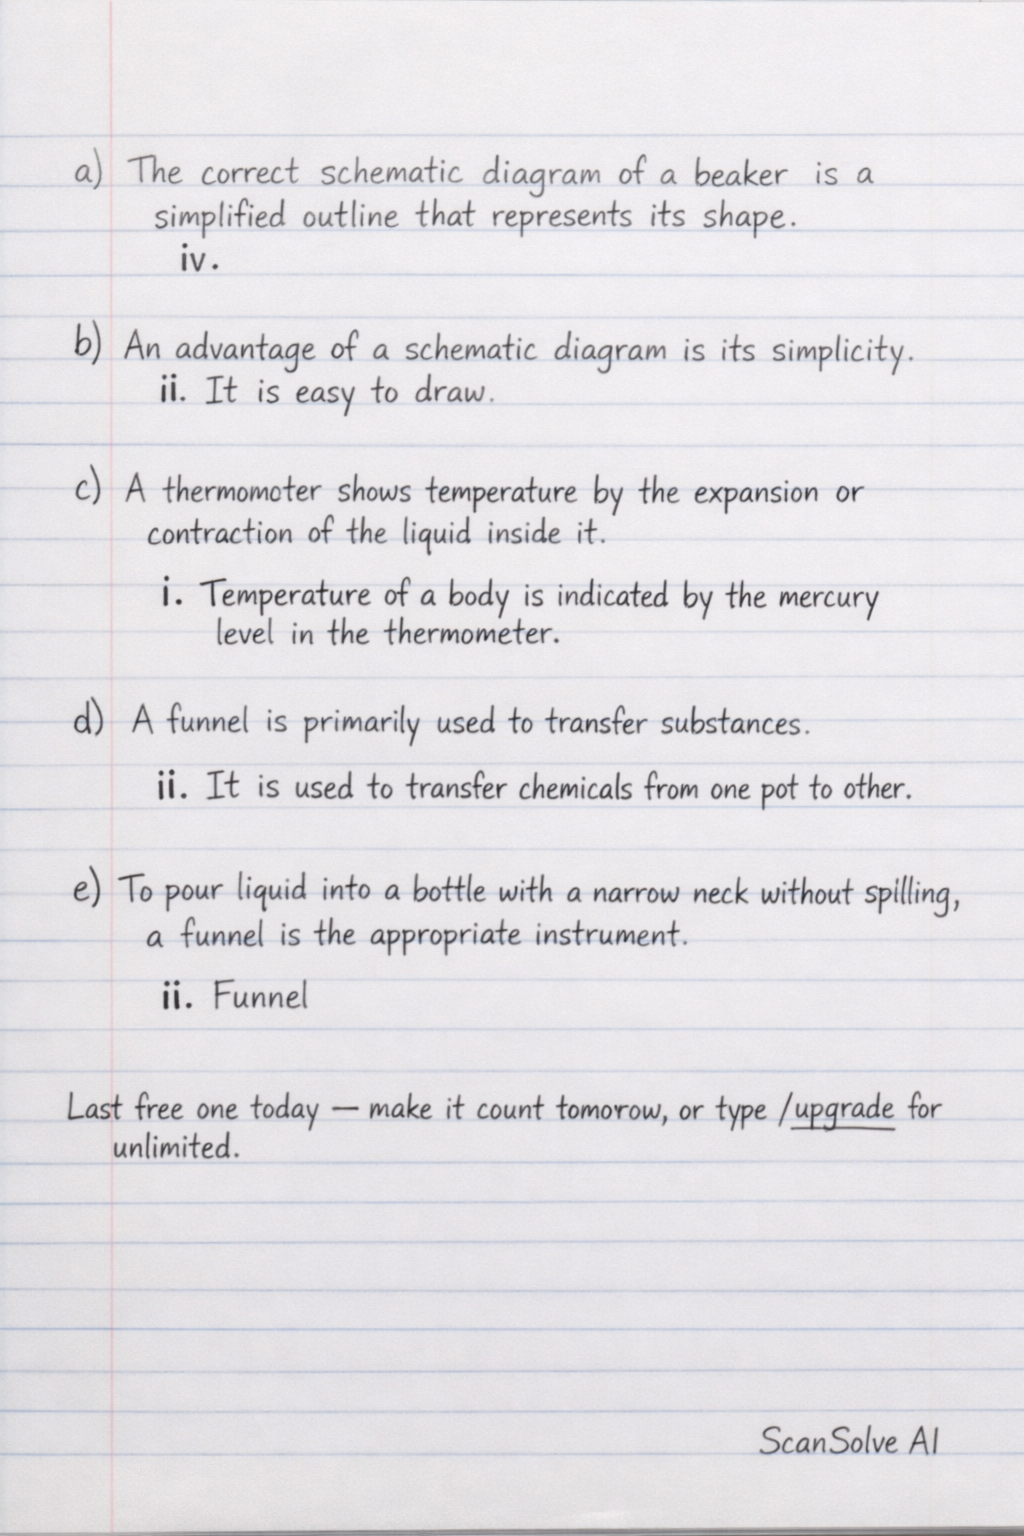 a) The correct schematic diagram of a beaker is a
simplified outline that represents its shape.
iv.
b) An advantage of a schematic diagram is its simplicity.
ii. It is easy to draw.
c) A thermomoter shows temperature by the expansion or
contraction of the liquid inside it.
i. Temperature of a body is indicated by the mercury
level in the thermometer.
d) A funnel is primarily used to transfer substances.
ii. It is used to transfer chemicals from one pot to other.
e) To pour liquid into a bottle with a narrow neck without spilling,
a funnel is the appropriate instrument.
ii. Funnel
Last free one today — make it count tomorow, or type /upgrade for
unlimited.
ScanSolve AI